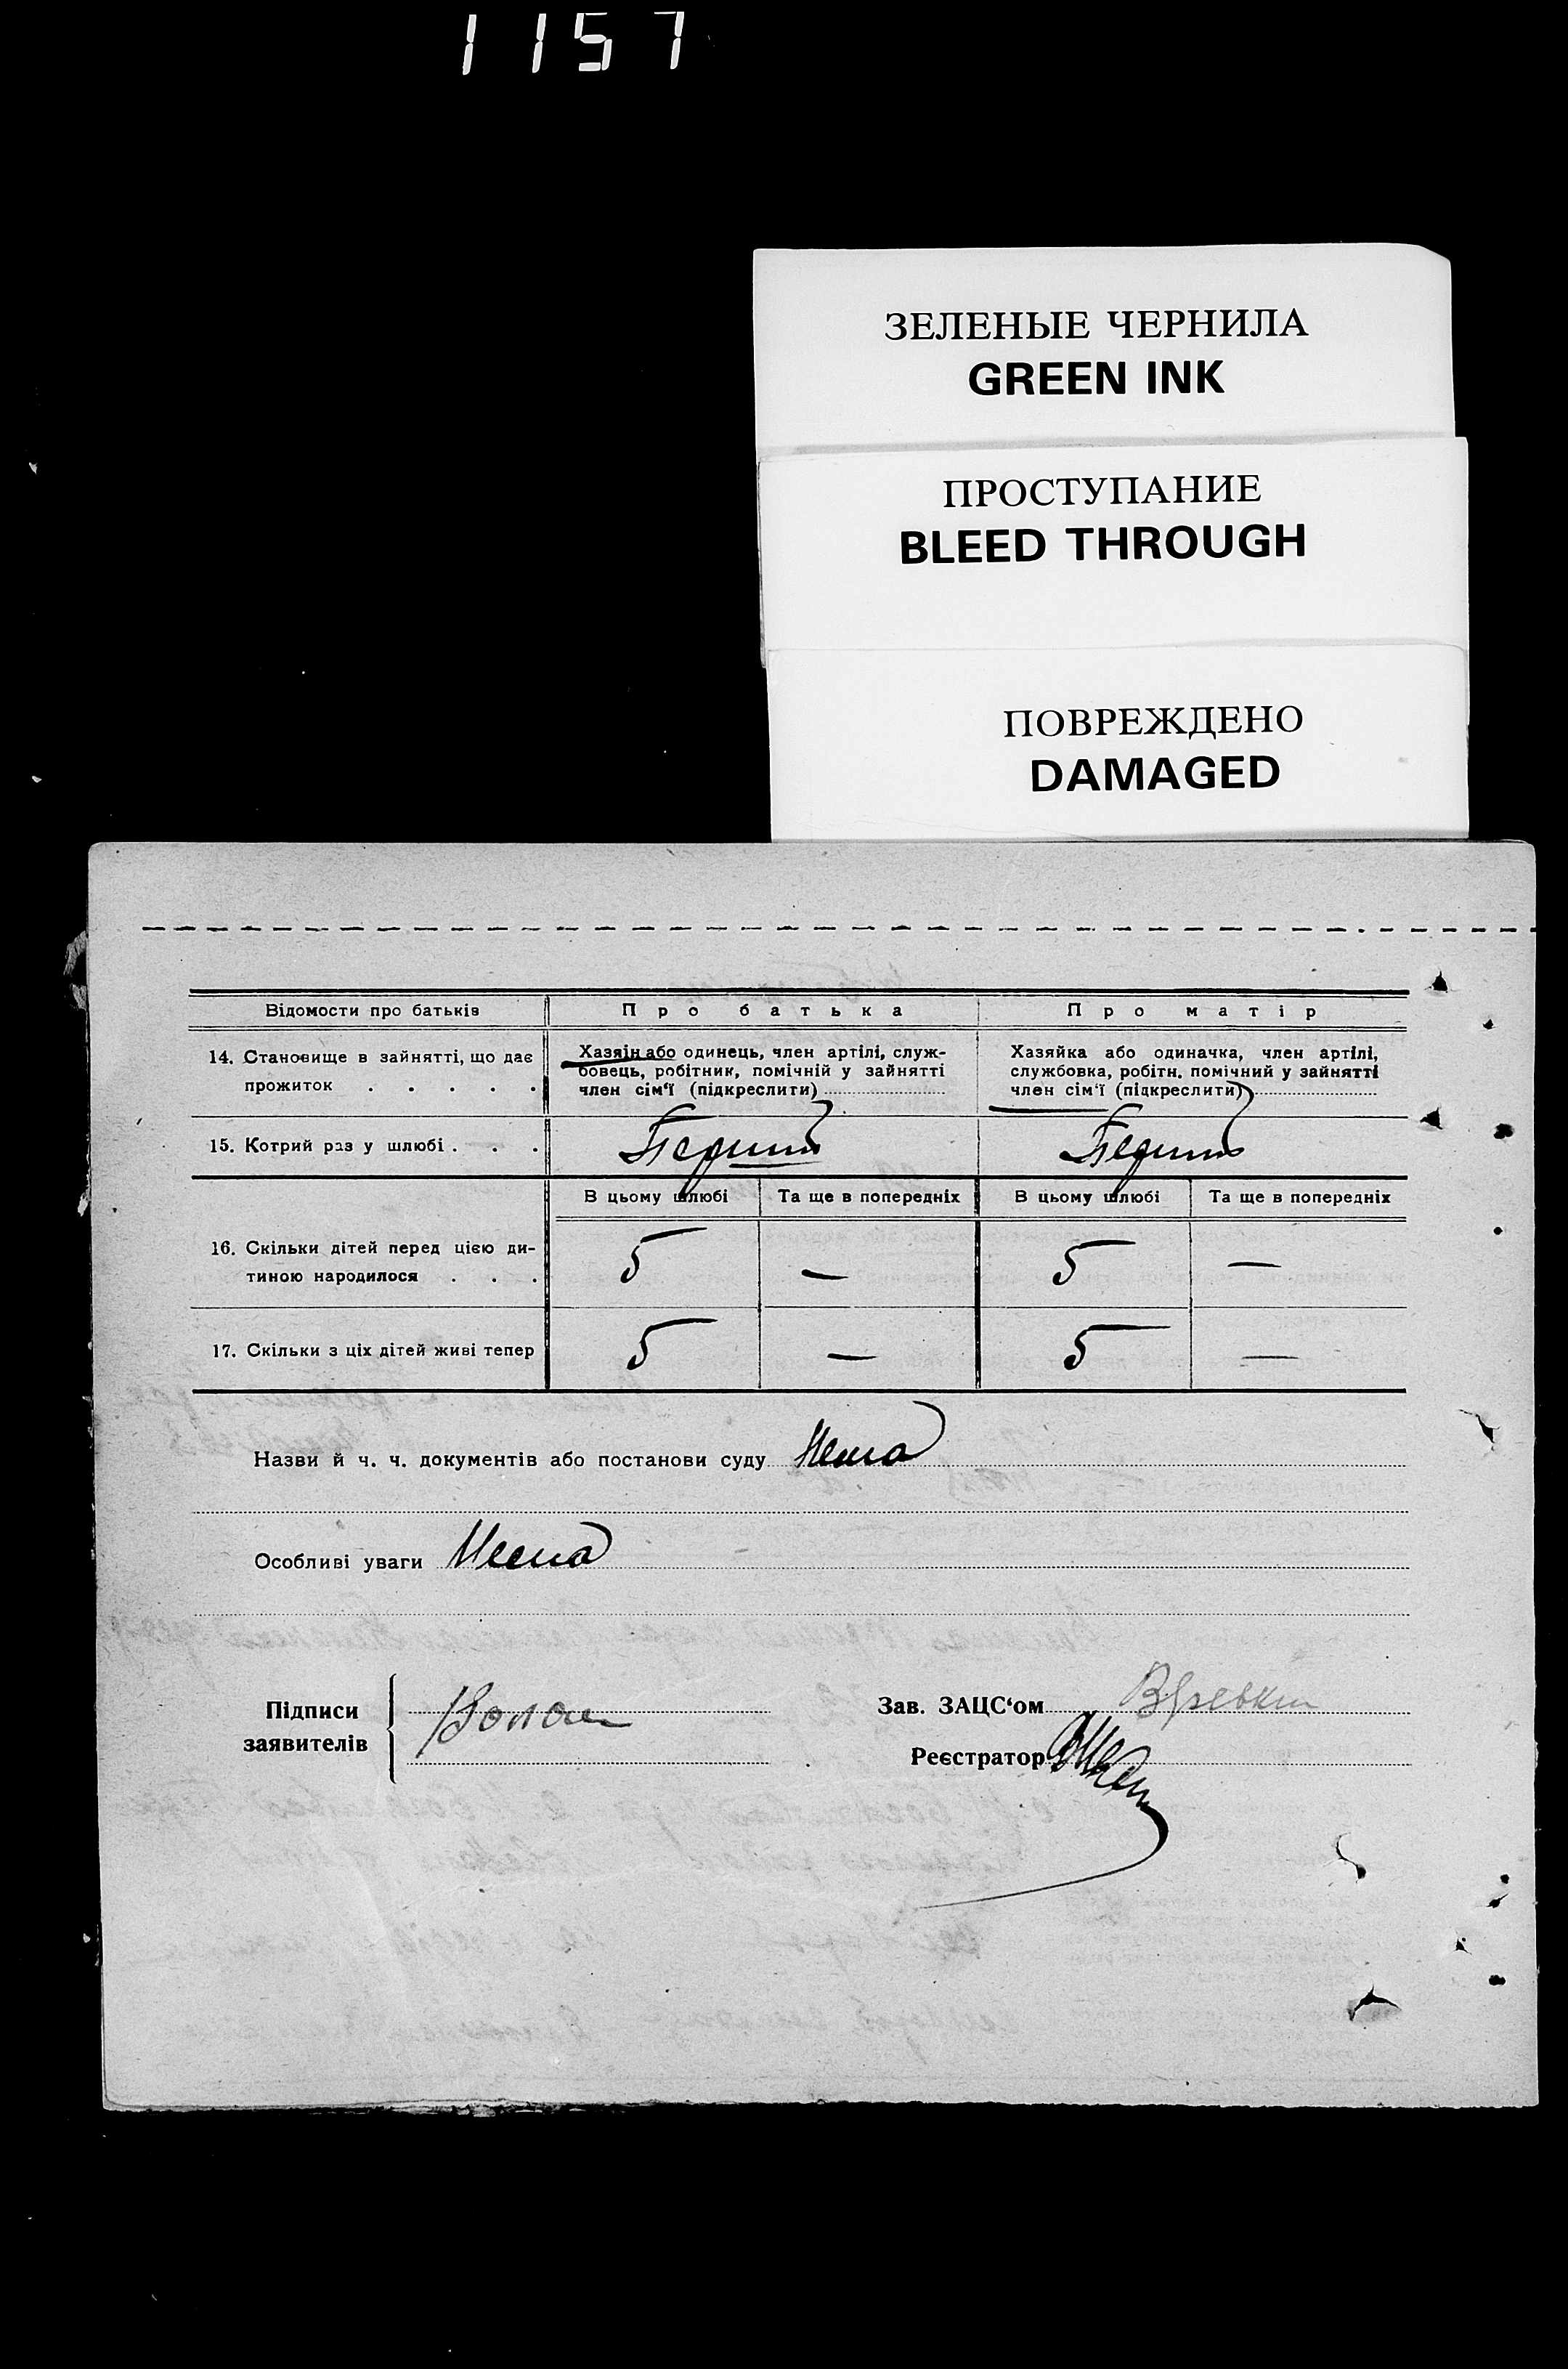 1157
ЗЕЛЕНЫЕ ЧЕРНИЛА
GREEN INK
ПРОСТУПАНИЕ
BLEED THROUGH
ПОВРЕЖДЕНО
DAMAGED
Відомости про батьків
Про батька
Про матір
14. Становище в зайнятті, що дає
прожиток . . . . .
Хазяїн або одинець, член артілі, служ-
бовець, робітник, помічній у зайнятті
член сім‘ї (підкреслити)
Хазяйка або одиначка, член артілі,
службовка, робітн. помічний у зайнятті
член сім‘ї (підкреслити)
15. Котрий раз у шлюбі . . .
Перший
Перший
В цьому шлюбі
Та ще в попередніх
В цьому шлюбі
Та ще в попередніх
16. Скільки дітей перед цією ди-
тиною народилося . . .
5
—
5
—
17. Скільки з ціх дітей живі тепер
5
—
5
—
Назви й ч. ч. документів або постанови суду Нема
Особливі уваги Нема
Підписи
заявителів
Зав. ЗАЦС‘ом
Реєстратор